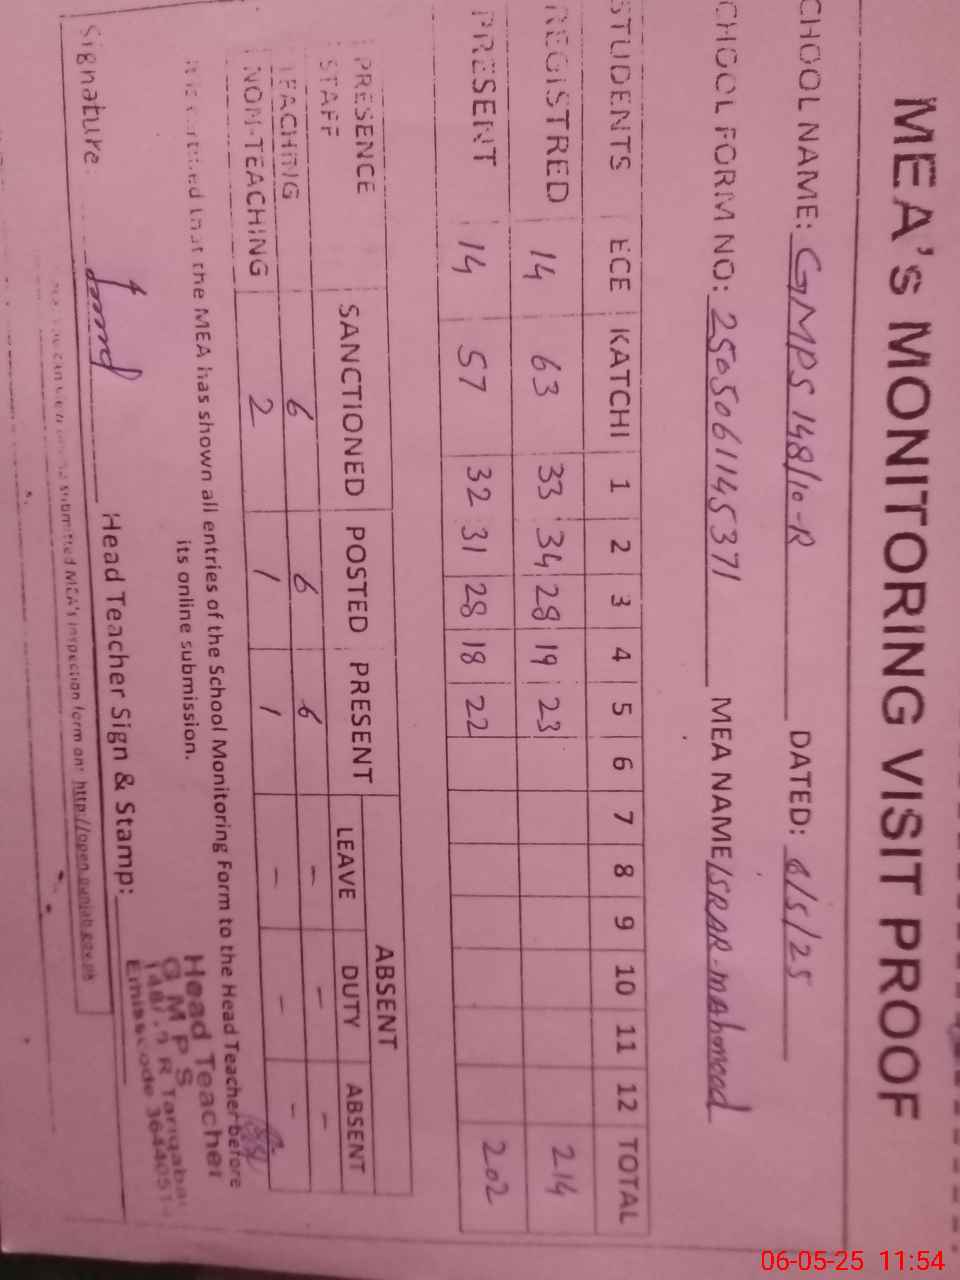 MEA'S MONITORING VISIT PROOF
CHOOL NAME: GMPS 148/10-R DATED: 6/5/25
CHOOL FORM NO: 2505061145371 MEA NAME ISRAR-mahmood
STUDENTS ECE KATCHI 1 2 3 4 5 6 7 8 9 10 11 12 TOTAL
REGISTRED 14 63 33 34 28 19 23 214
PRESENT 14 57 32 31 28 18 22 202
PRESENCE SANCTIONED POSTED PRESENT ABSENT
STAFF LEAVE DUTY ABSENT
TEACHING 6 6 6 - - -
NON-TEACHING 2 1 1 - - -
It is certified that the MEA has shown all entries of the School Monitoring Form to the Head Teacher before
its online submission.
Signature: Head Teacher Sign & Stamp:
Head Teacher
G M P S
R Tariqabad
Emiss code
submitted MEA's inspection form on: http://open.punjab.gov.pk
06-05-25 11:54